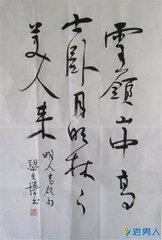 雪满山中高
士卧月明林下
美人来
明人高启句
老男人